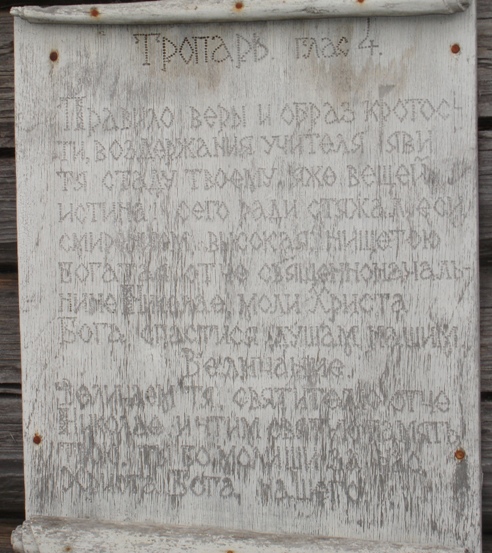 Тропарь глас 4.
Правило веры и образ кротос-
ти, воздержания учителя яви
тя стаду твоему, яже вещей
истина: сего ради стяжал еси
смирением высокая, нищетою
богатая, отче священноначаль-
ниче Николае, моли Христа
Бога, спастися душам нашим.
Величание.
Величаем тя, святителю отче
Николае, и чтим святую память
твою: ты бо молиши за нас
Христа Бога нашего.